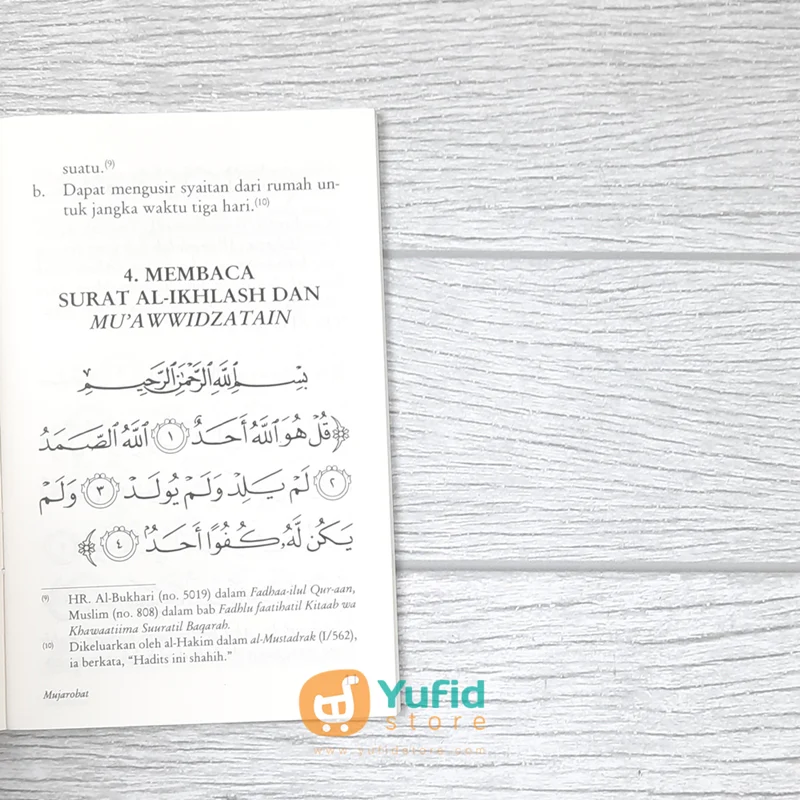 suatu.(9)
b. Dapat mengusir syaitan dari rumah un-
tuk jangka waktu tiga hari.(10)
4. MEMBACA
SURAT AL-IKHLASH DAN
MU'AWWIDZATAIN
بِسْمِ ٱللَّهِ ٱلرَّحْمَٰنِ ٱلرَّحِيمِ
﴿قُلْ هُوَ ٱللَّهُ أَحَدٌ ١ ٱللَّهُ ٱلصَّمَدُ
٢ لَمْ يَلِدْ وَلَمْ يُولَدْ ٣ وَلَمْ
يَكُن لَّهُۥ كُفُوًا أَحَدٌۢ ٤ ﴾
(9) HR. Al-Bukhari (no. 5019) dalam Fadhaa-ilul Qur-aan,
Muslim (no. 808) dalam bab Fadhlu faatihatil Kitaab wa
Khawaatiima Suuratil Baqarah.
(10) Dikeluarkan oleh al-Hakim dalam al-Mustadrak (I/562),
ia berkata, "Hadits ini shahih."
Mujarobat
Yufid
store
www.yufidstore.com